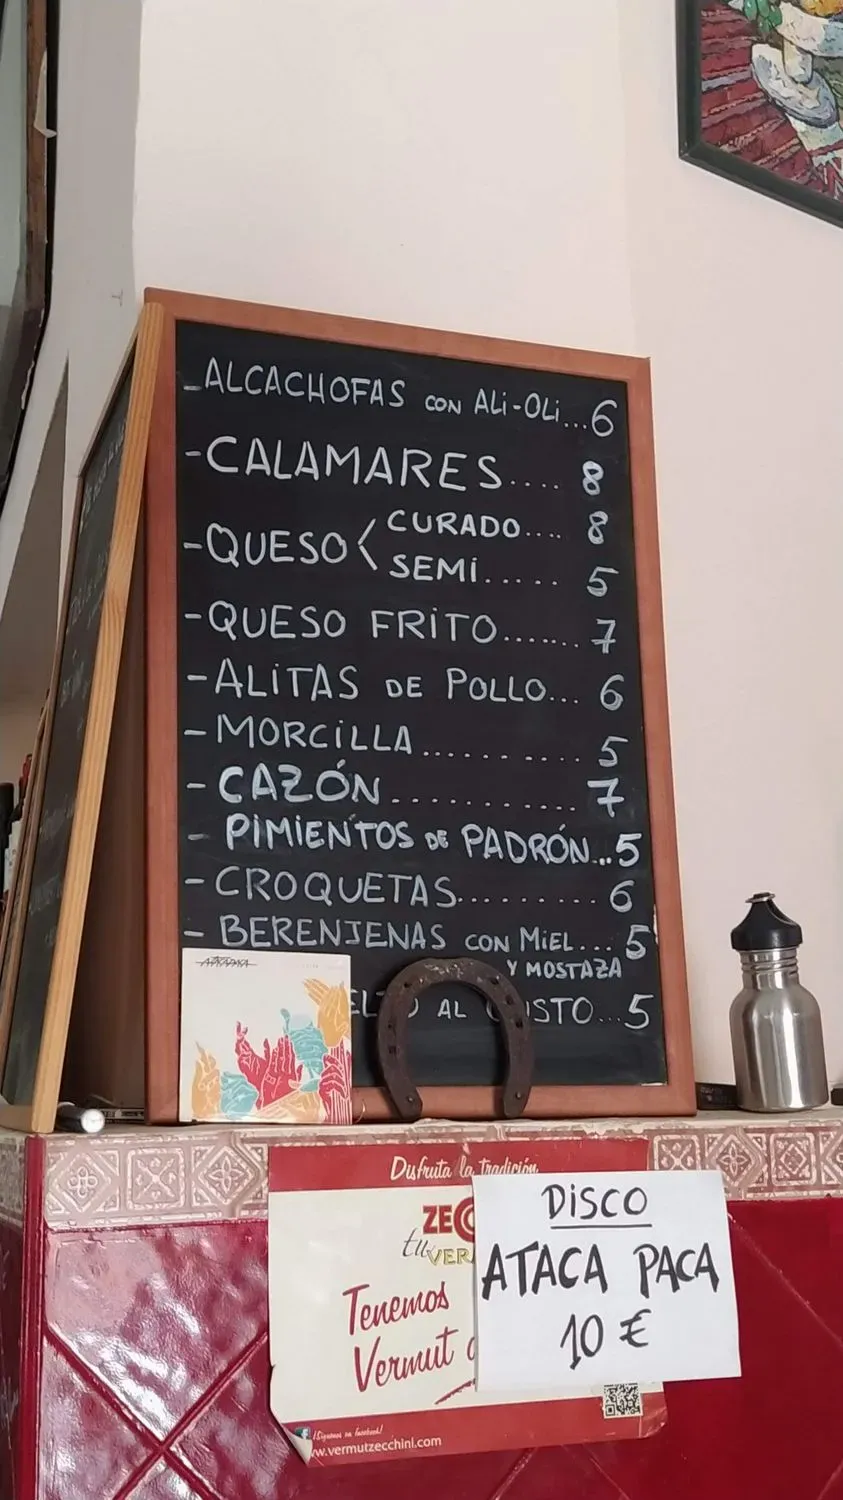 - ALCACHOFAS CON ALi-OLi...6
- CALAMARES.... 8
- QUESO < CURADO.... 8
SEMi..... 5
- QUESO FRiTO....... 7
- ALiTAS DE POLLO... 6
- MORCiLLA........... 5
- CAZÓN........... 7
- PiMiENTOS DE PADRÓN...5
- CROQUETAS......... 6
- BERENJENAS CON MiEL... 5
Y MOSTAZA
AL STO...5
Disfruta la tradición
ZE
tu VER
Tenemos
Vermut
¡Síguenos en facebook!
www.vermutzecchini.com
DiSCO
ATACA PACA
10 €